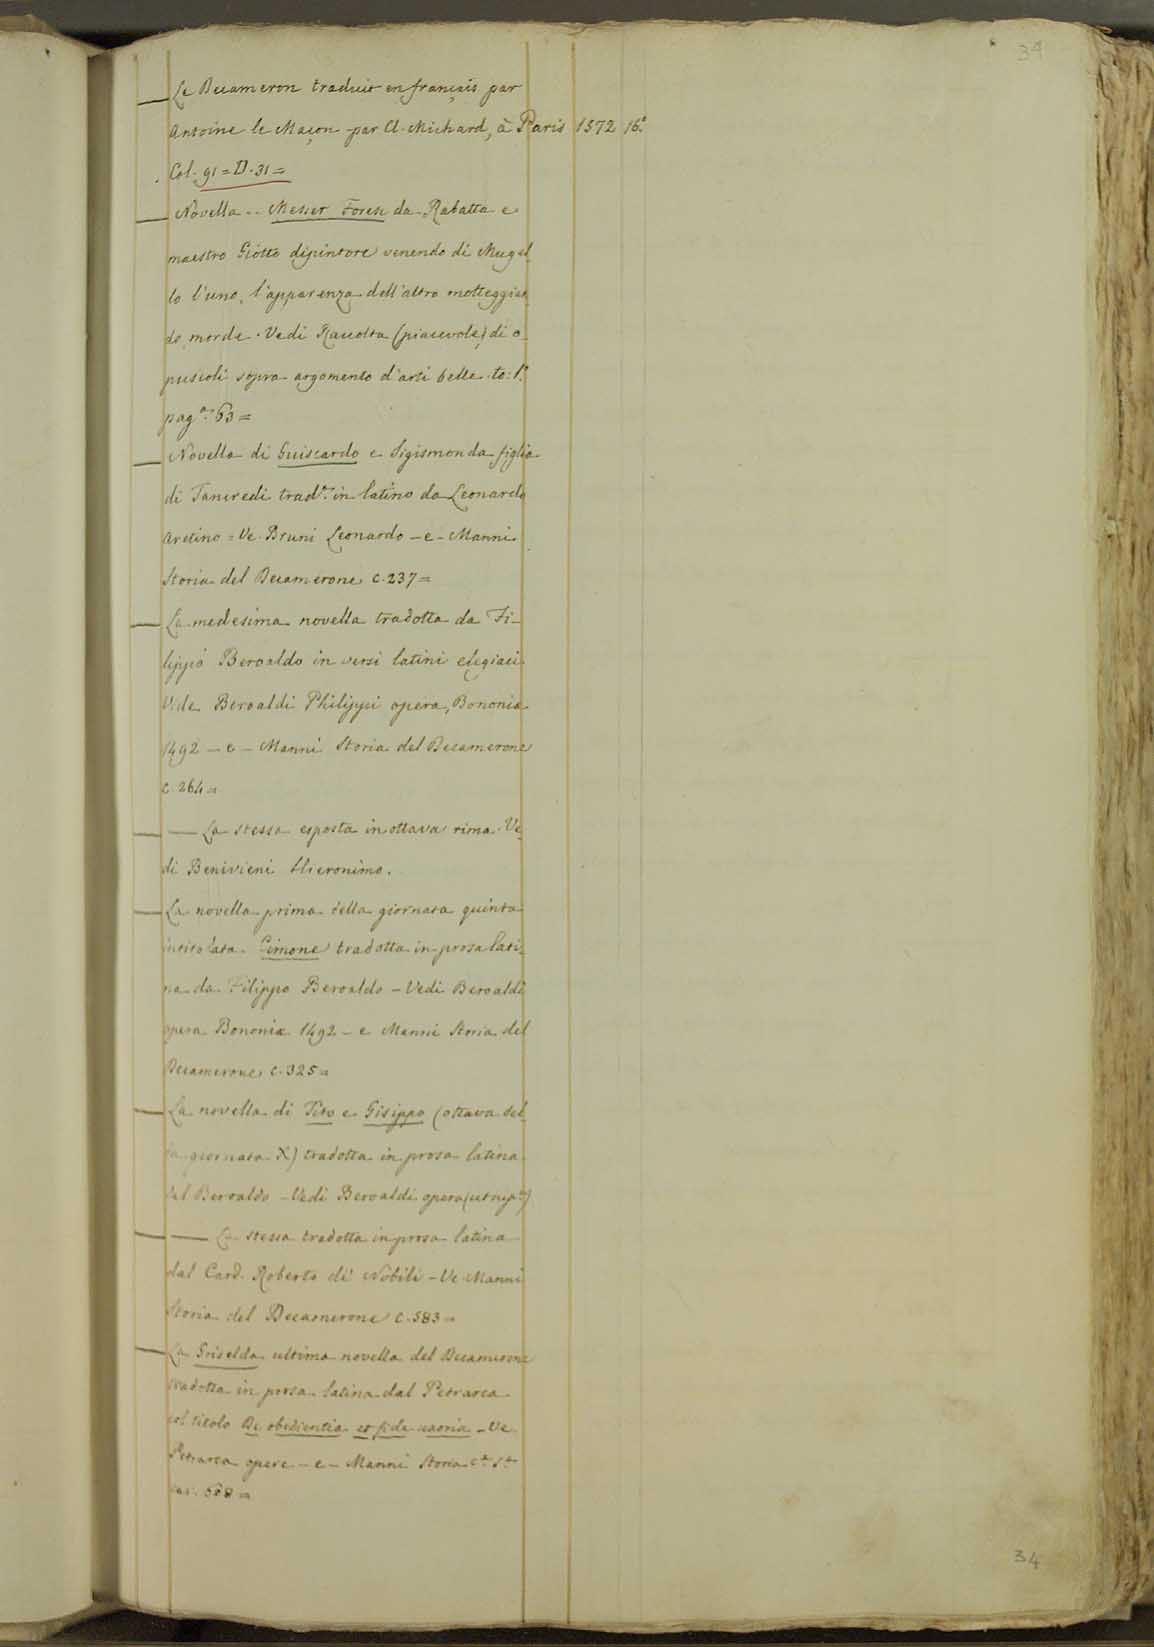 34
— Le Decameron traduit en français par
Antoine le Maçon par Cl. Michard, à Paris 1572 16.°
Col. 91 = D. 31 =
— Novella .. Messer Forese da Rabatta e
maestro Giotto dipintore venendo di Mugel-
lo l'uno, l'apparenza dell'altro motteggian
do, morde. Vedi Raccolta (piacevole) di o-
puscoli sopra argomento d'arti belle to: 1.°
pag.ª 63 =
— Novella di Guiscardo e Sigismonda figlia
di Tancredi trad.ª in latino da Leonardo
Aretino = Ve. Bruni Leonardo – e – Manni
Storia del Decamerone c. 237 =
— La medesima novella tradotta da Fi-
lippo Beroaldo in versi latini elegiaci
Vide Beroaldi Philippi opera, Bononia
1492 – e – Manni Storia del Decamerone
c. 264 =
— — La stessa esposta in ottava rima. Ve-
di Benivieni Hieronimo.
— La novella prima della giornata quinta
intitolata Cimone tradotta in prosa lati-
na da Filippo Beroaldo – Vedi Beroaldi
opera Bononiæ 1492 – e Manni Storia del
Decamerone c. 325 =
— La novella di Tito e Gisippo (ottava del
la giornata X) tradotta in prosa latina
dal Beroaldo – Vedi Beroaldi opera (ut sup.ª)
— — La stessa tradotta in prosa latina
dal Card. Roberto de' Nobili – Ve. Manni
Storia del Decamerone c. 583 =
— La Griselda ultima novella del Decamerone
tradotta in prosa latina dal Petrarca
col titolo De obedientia et fide uxoria – Ve
Petrarca opere – e – Manni Storia c.ª s.ª
car. 608 =
34